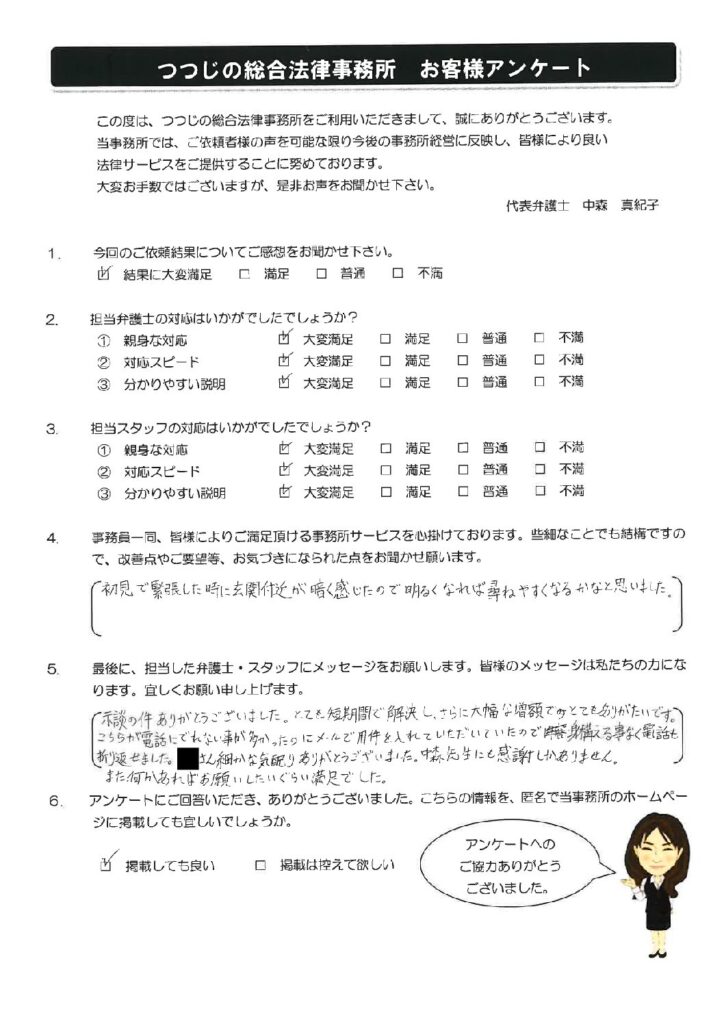 つつじの総合法律事務所　お客様アンケート
この度は、つつじの総合法律事務所をご利用いただきまして、誠にありがとうございます。
当事務所では、ご依頼者様の声を可能な限り今後の事務所経営に反映し、皆様により良い
法律サービスをご提供することに努めております。
大変お手数ではございますが、是非お声をお聞かせ下さい。
代表弁護士　中森　真紀子
1.　今回のご依頼結果についてご感想をお聞かせ下さい。
☑ 結果に大変満足　□ 満足　□ 普通　□ 不満
2.　担当弁護士の対応はいかがでしたでしょうか？
① 親身な対応　☑ 大変満足　□ 満足　□ 普通　□ 不満
② 対応スピード　☑ 大変満足　□ 満足　□ 普通　□ 不満
③ 分かりやすい説明　☑ 大変満足　□ 満足　□ 普通　□ 不満
3.　担当スタッフの対応はいかがでしたでしょうか？
① 親身な対応　☑ 大変満足　□ 満足　□ 普通　□ 不満
② 対応スピード　☑ 大変満足　□ 満足　□ 普通　□ 不満
③ 分かりやすい説明　☑ 大変満足　□ 満足　□ 普通　□ 不満
4.　事務員一同、皆様によりご満足頂ける事務所サービスを心掛けております。些細なことでも結構ですの
で、改善点やご要望等、お気づきになられた点をお聞かせ願います。
初見で緊張した時に玄関付近が暗く感じたので明るくなれば尋ねやすくなるかなと思いました。
5.　最後に、担当した弁護士・スタッフにメッセージをお願いします。皆様のメッセージは私たちの力にな
ります。宜しくお願い申し上げます。
示談の件ありがとうございました。とても短期間で解決し、さらに大幅な増額でのとてもありがたいです。
こちらが電話にでれない事が多かったのにメールで用件を入れていただいていたので身構える事なく電話も
折り返せました。さん細かな気配りありがとうございました。中森先生にも感謝しかありません。
また何かあればお願いしたいぐらい満足でした。
6.　アンケートにご回答いただき、ありがとうございました。こちらの情報を、匿名で当事務所のホームペー
ジに掲載しても宜しいでしょうか。
☑ 掲載しても良い　□ 掲載は控えて欲しい
アンケートへの
ご協力ありがとう
ございました。